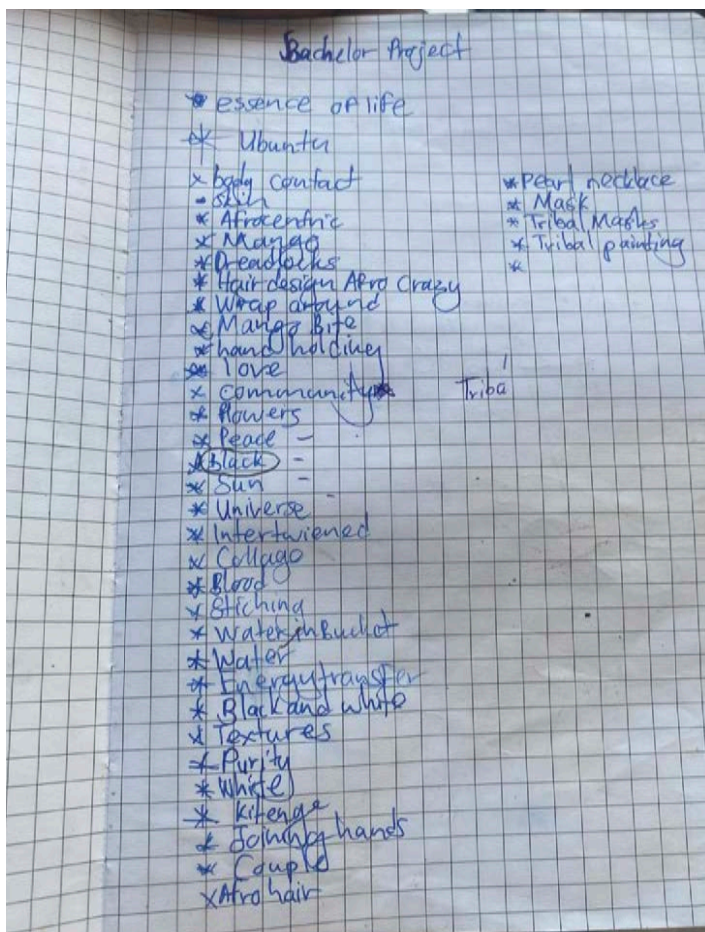 Bachelor Project
* essence of life
* Ubuntu
x body contact
- skin
* Afrocentric
x Mango
* Dreadlocks
* Hair design Afro Crazy
* Wrap around
x Mango Bite
* hand holding
* love
x community *
* flowers
* Peace -
* Black -
* Sun -
* Universe -
* Intertwiened
x Collage
* Blood
x Stiching
* Water in Bucket
* Water
* Energy transfer
* Black and white
x Textures
* Purity
* White
* Kitenge
x Joining hands
* Couple
x Afro hair
* Pearl necklace
* Mask
* Tribal Masks
* Tribal painting
*
Triba